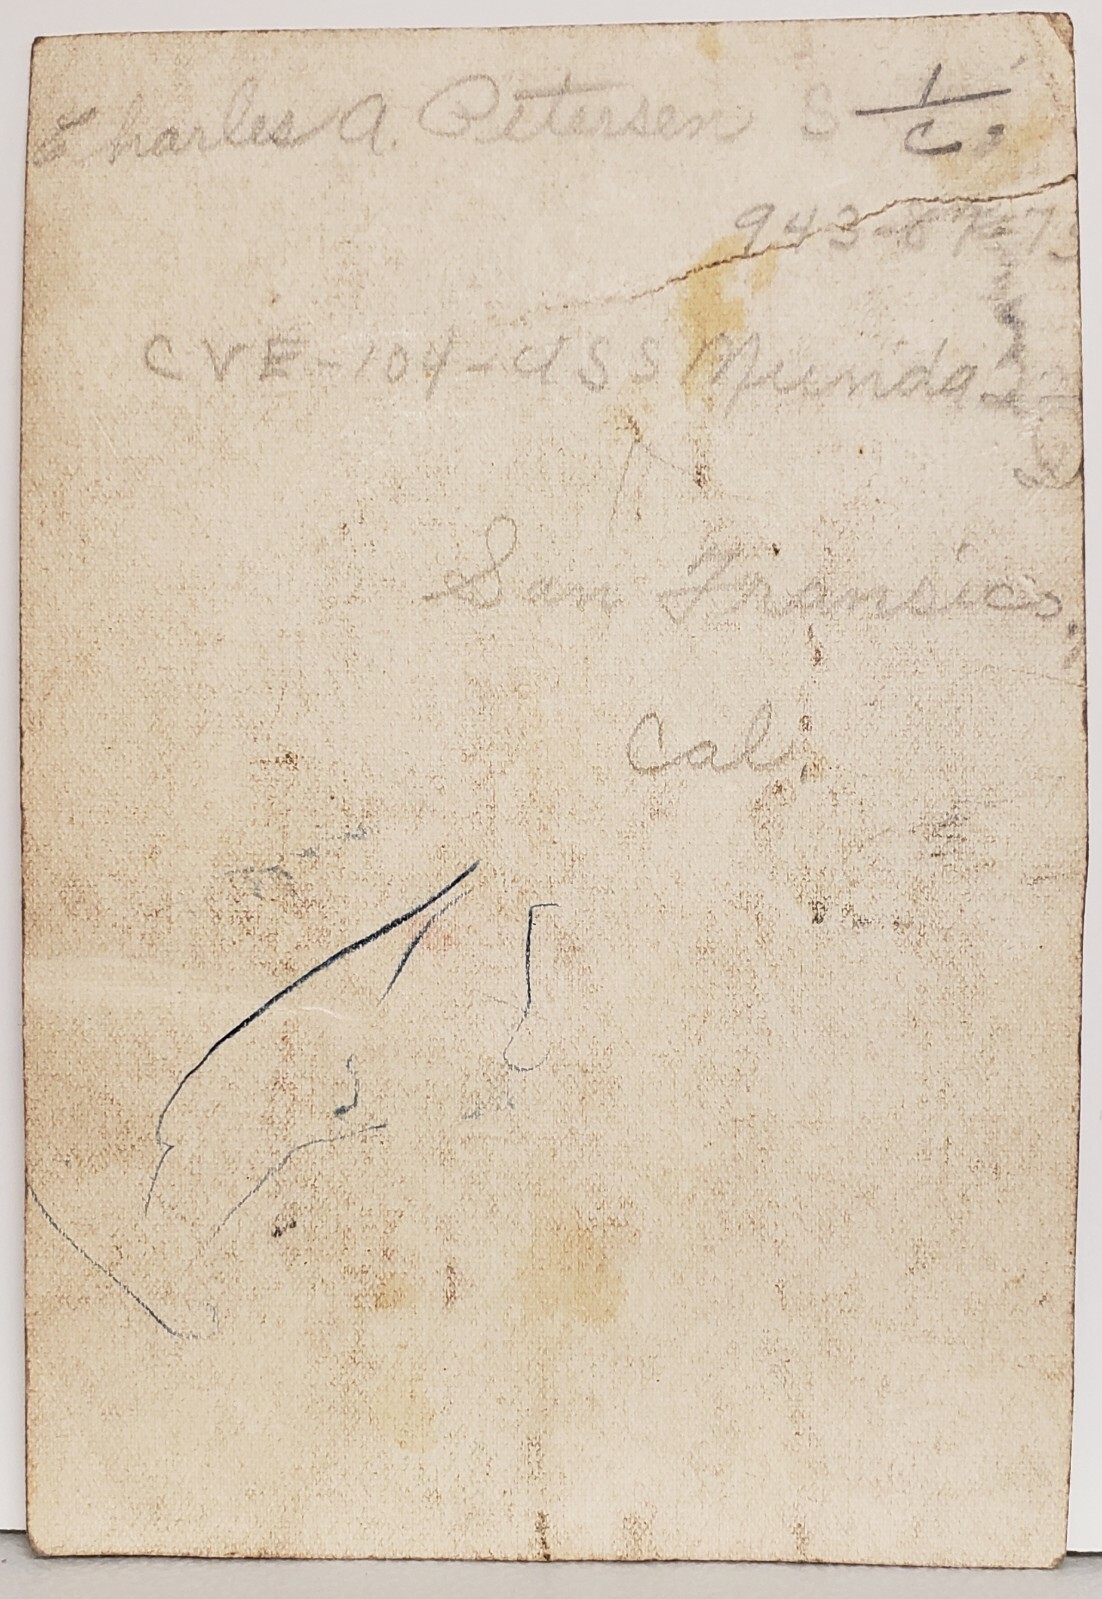 Charles A. Petersen S 1/c.
943-87-75
CVE-104-USS Munda
San Fransico,
Cal,